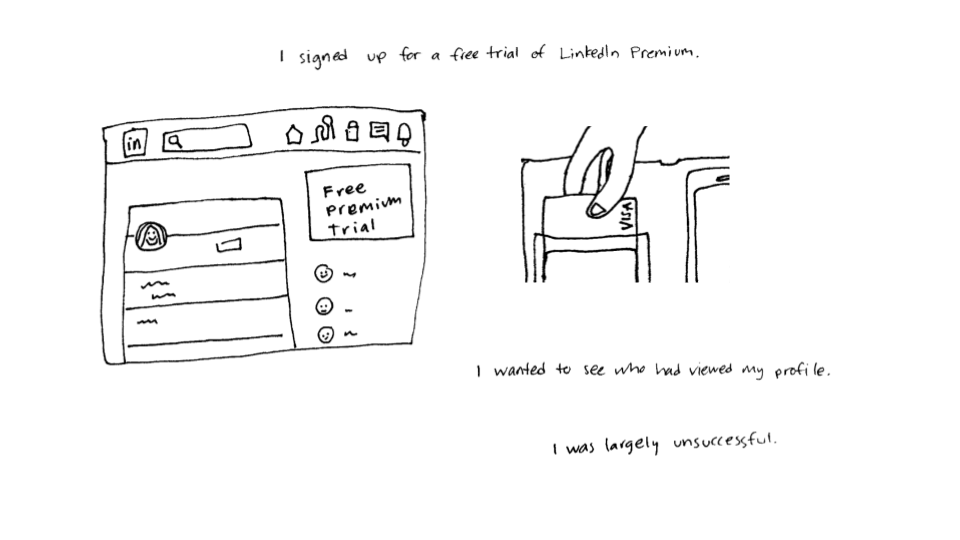 I signed up for a free trial of LinkedIn Premium.
in
Free
Premium
Trial
VISA
I wanted to see who had viewed my profile.
I was largely unsuccessful.